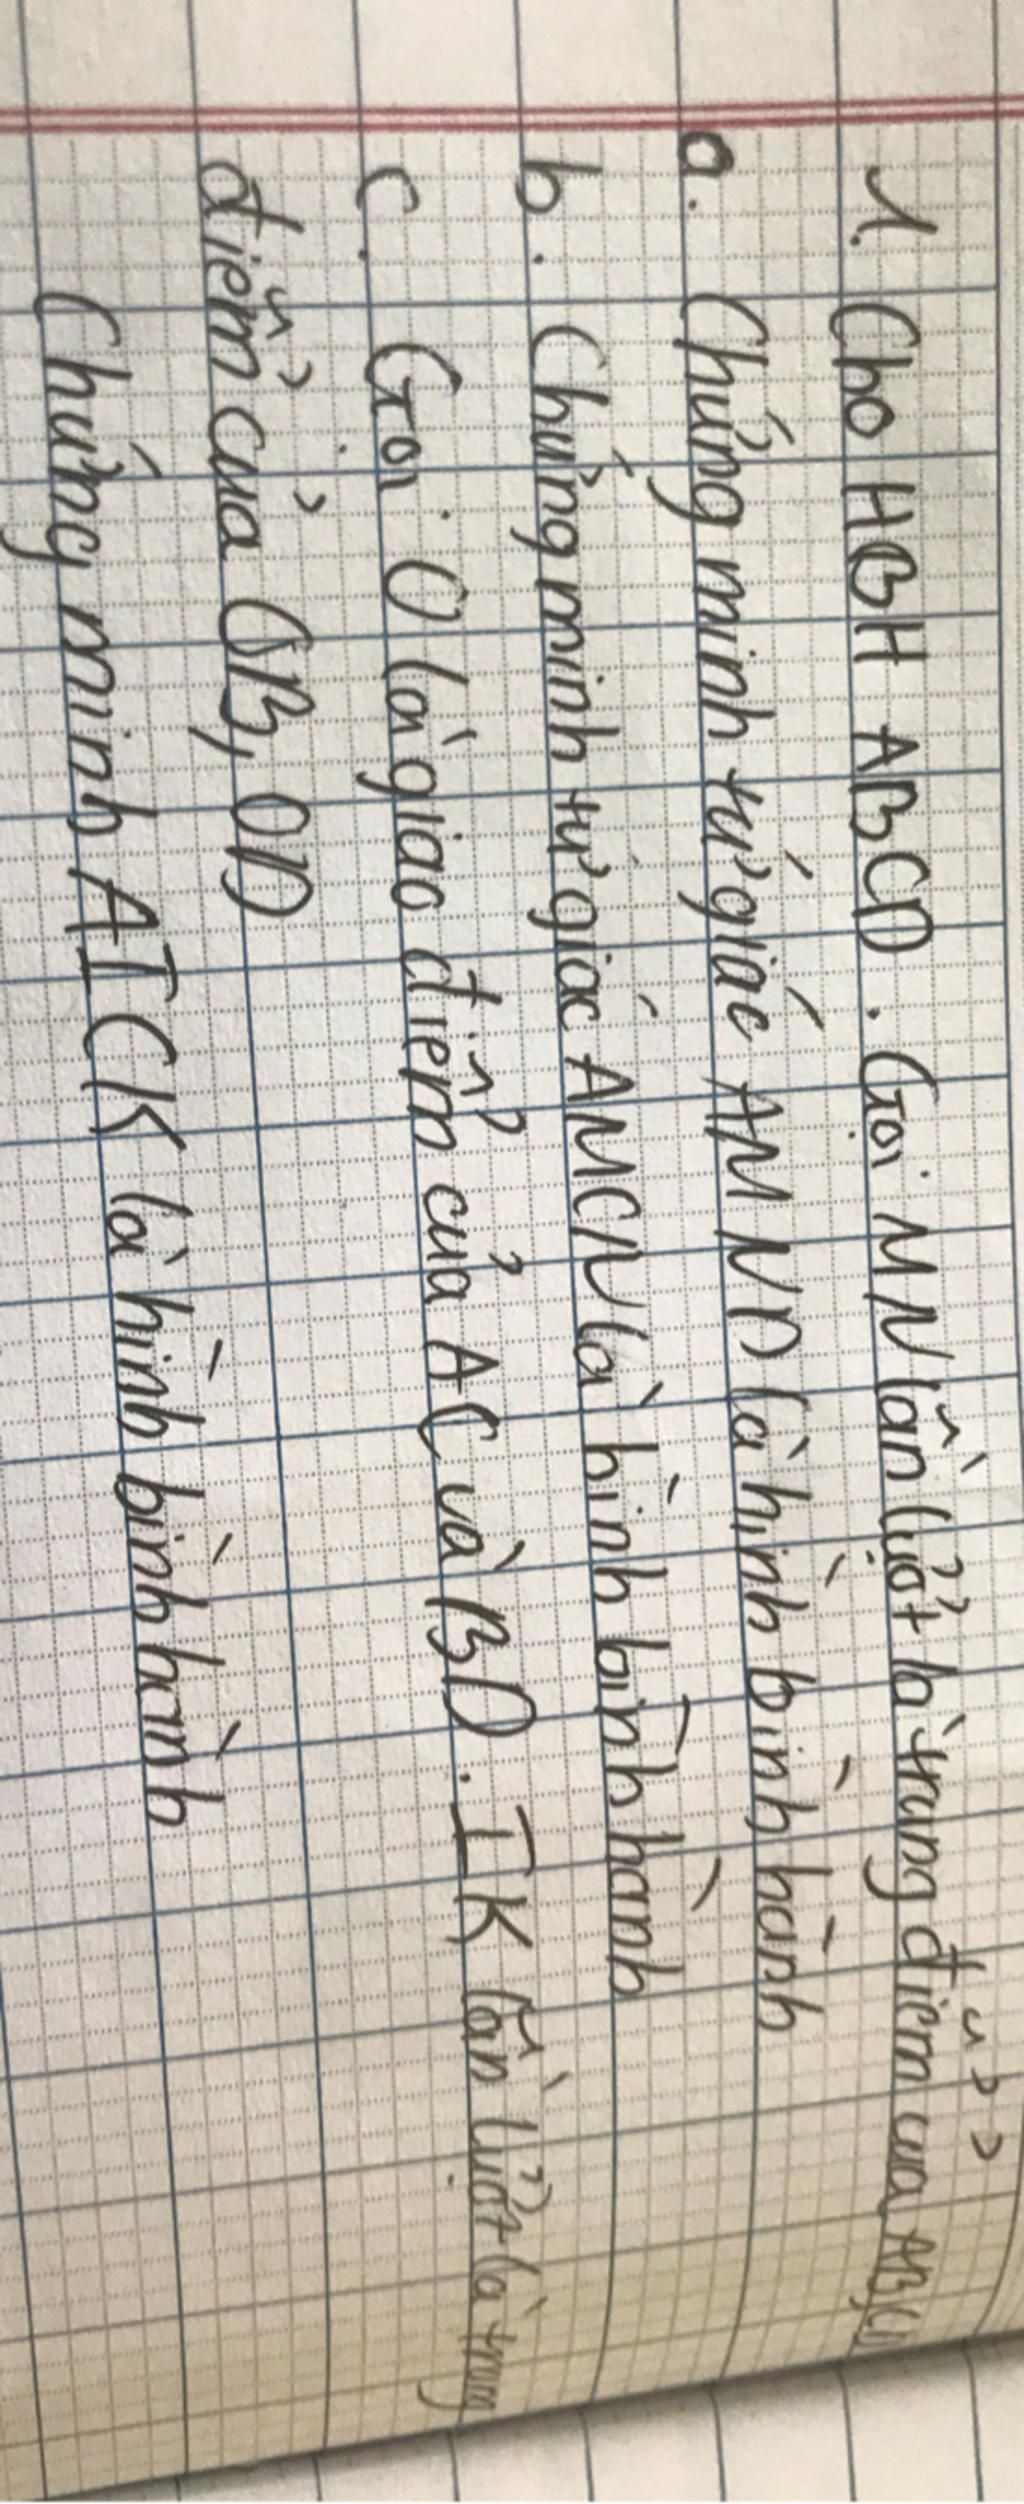 1. Cho HBH ABCD. Gọi M N lần lượt là trung điểm của AB, CD
a. Chứng minh tứ giác AMND là hình bình hành
b. Chứng minh tứ giác AMCN là hình bình hành
c. Gọi O là giao điểm của AC và BD. I K lần lượt là trung
điểm của OB, OD
Chứng minh AICK là hình bình hành